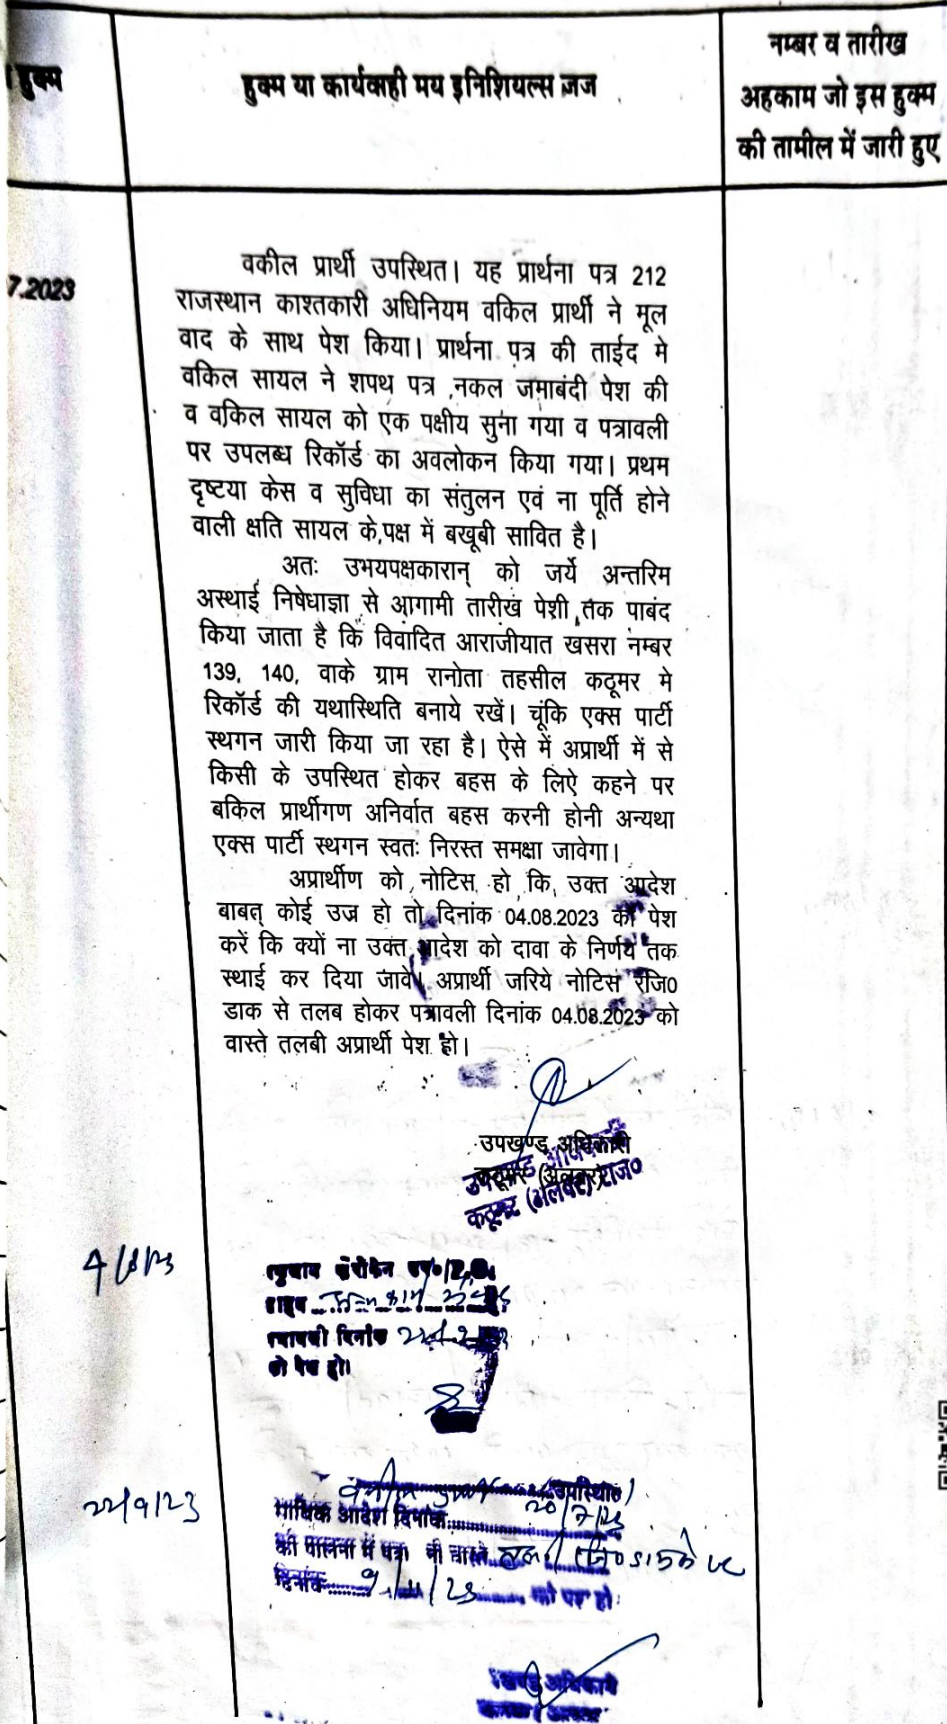 हुक्म
हुक्म या कार्यवाही मय इनिशियल्स जज
नम्बर व तारीख
अहकाम जो इस हुक्म
की तामील में जारी हुए
7.2023
वकील प्रार्थी उपस्थित। यह प्रार्थना पत्र 212
राजस्थान काश्तकारी अधिनियम वकिल प्रार्थी ने मूल
वाद के साथ पेश किया। प्रार्थना पत्र की ताईद मे
वकिल सायल ने शपथ पत्र ,नकल जमाबंदी पेश की
व वकिल सायल को एक पक्षीय सुना गया व पत्रावली
पर उपलब्ध रिकॉर्ड का अवलोकन किया गया। प्रथम
दृष्टया केस व सुविधा का संतुलन एवं ना पूर्ति होने
वाली क्षति सायल के पक्ष में बखूबी सावित है।
अतः उभयपक्षकारान् को जर्ये अन्तरिम
अस्थाई निषेधाज्ञा से आगामी तारीख पेशी तक पाबंद
किया जाता है कि विवादित आराजीयात खसरा नम्बर
139, 140, वाके ग्राम रानोता तहसील कठूमर मे
रिकॉर्ड की यथास्थिति बनाये रखें। चूंकि एक्स पार्टी
स्थगन जारी किया जा रहा है। ऐसे में अप्रार्थी में से
किसी के उपस्थित होकर बहस के लिऐ कहने पर
बकिल प्रार्थीगण अनिर्वात बहस करनी होनी अन्यथा
एक्स पार्टी स्थगन स्वतः निरस्त समक्षा जावेगा।
अप्रार्थीण को नोटिस हो कि, उक्त आदेश
बाबत् कोई उज्र हो तो दिनांक 04.08.2023 को पेश
करें कि क्यों ना उक्त आदेश को दावा के निर्णय तक
स्थाई कर दिया जावे। अप्रार्थी जरिये नोटिस रजि0
डाक से तलब होकर पत्रावली दिनांक 04.08.2023 को
वास्ते तलबी अप्रार्थी पेश हो।
उपखण्ड अधिकारी
कठूमर (अलवर)
उपखण्ड अधिकारी
कठूमर (अलवर) राज०
4/8/23
दिनांक
को पेश हो।
22/9/23
उपस्थित।
आदेश दिनांक 20/7/23
की पालना में वास्ते
दिनांक 9/11/23 को पेश हो
अधिकारी